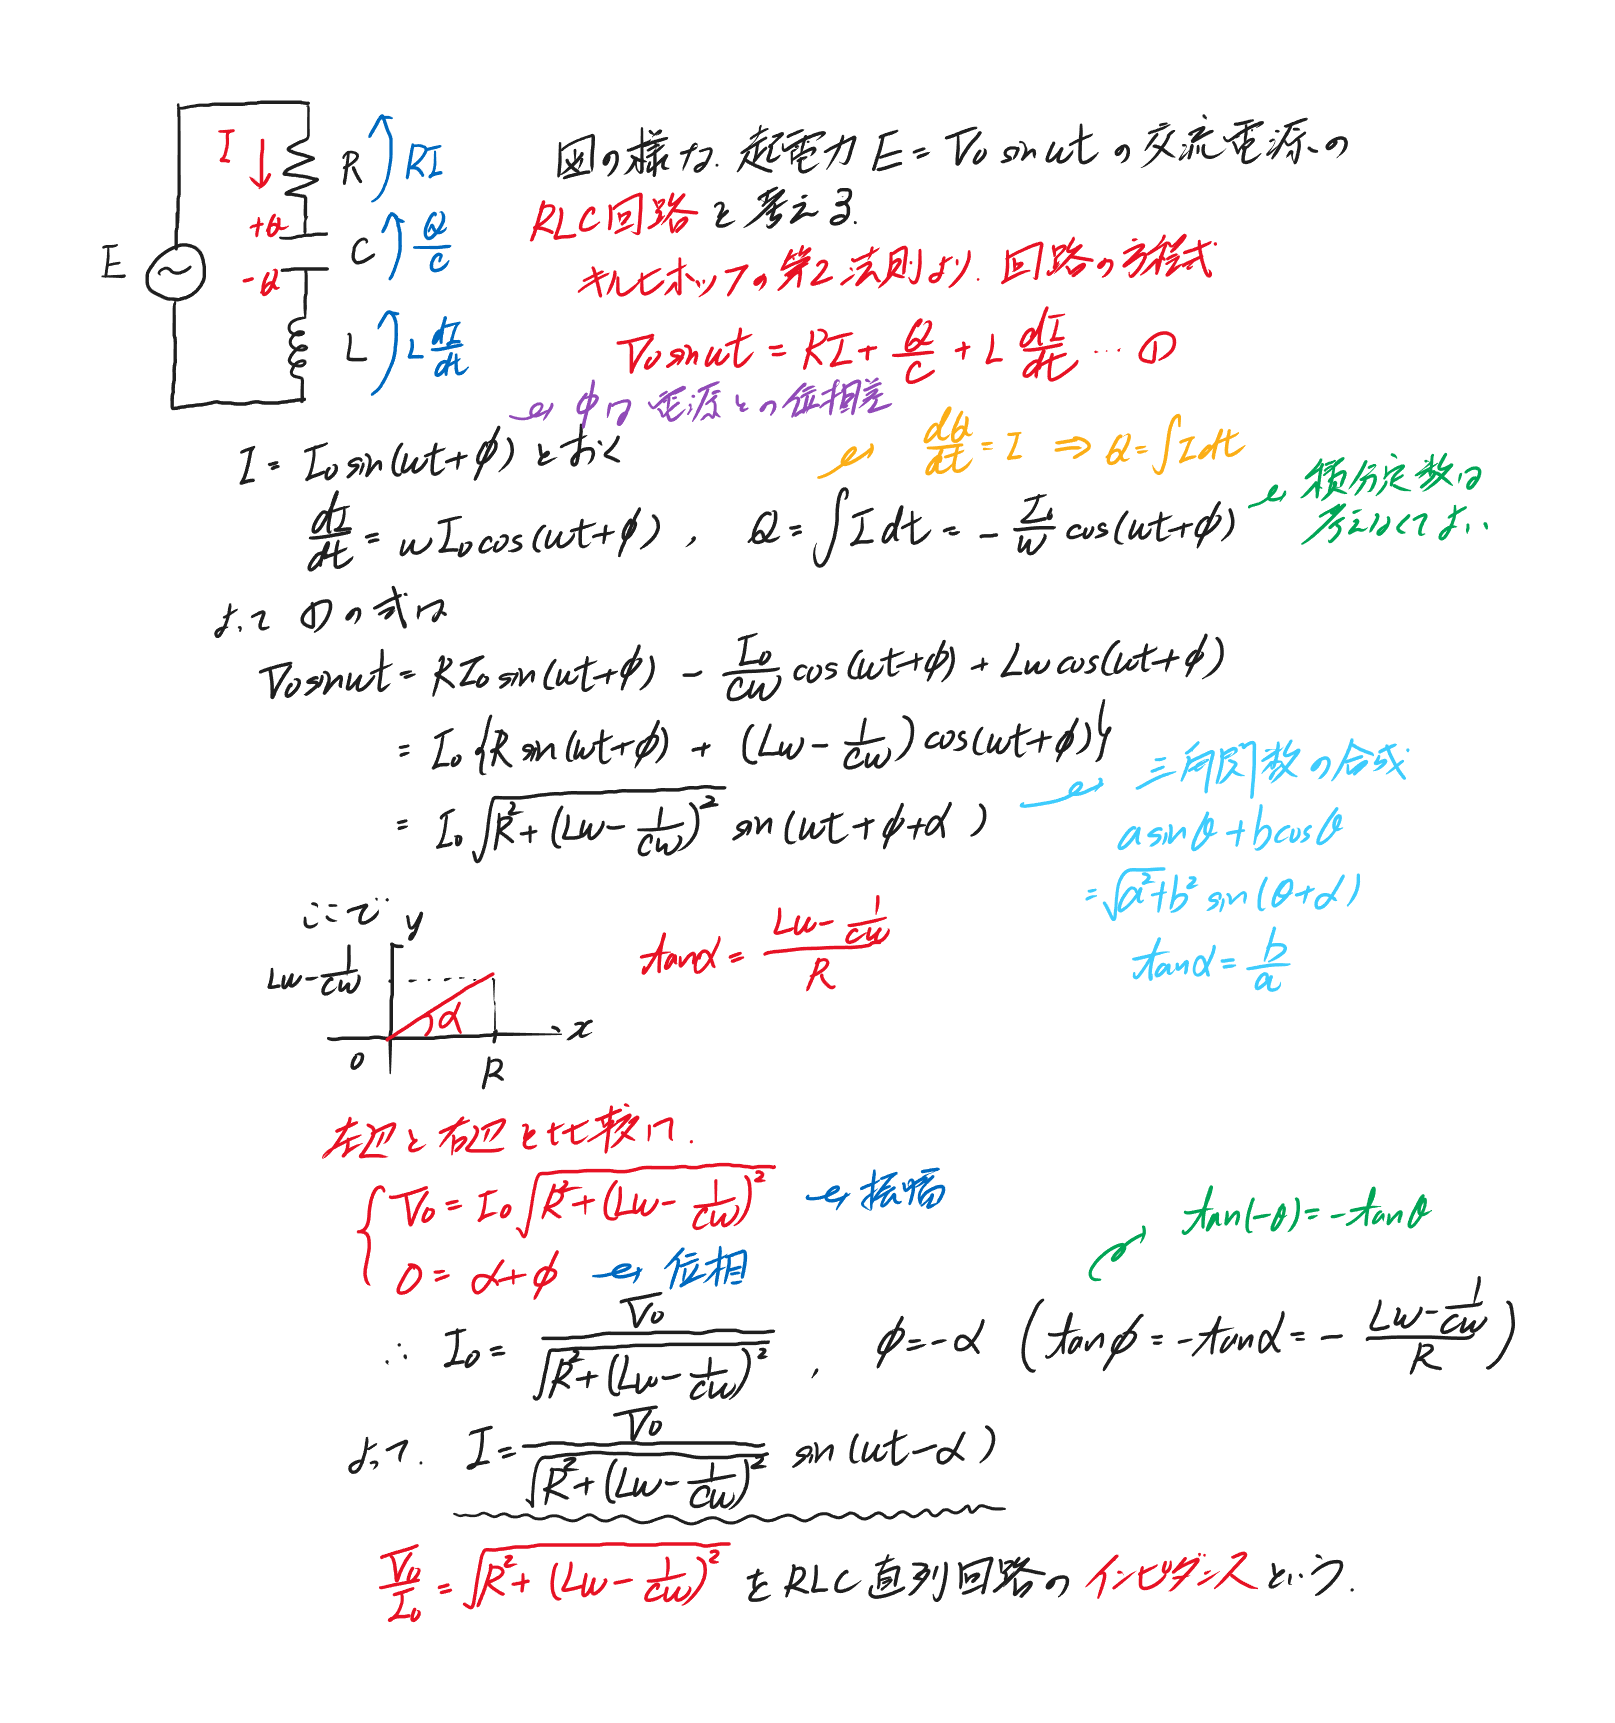 図の様な. 起電力 E = V₀ sin ωt の交流電源の
RLC回路を考える.
キルヒホッフの第2法則より. 回路の方程式
V₀ sin ωt = RI + Q/C + L dI/dt … ①
E
I
R
RI
+Q
-Q
C
Q/C
L
L dI/dt
φは電源との位相差
I = I₀ sin(ωt+φ) とおく
dQ/dt = I ⇒ Q = ∫ I dt
dI/dt = ωI₀ cos(ωt+φ) , Q = ∫ I dt = - I₀/ω cos(ωt+φ)
積分定数は
考えなくてよい
よって ①の式は
V₀ sin ωt = RI₀ sin(ωt+φ) - I₀/Cω cos(ωt+φ) + Lω cos(ωt+φ)
= I₀ { R sin(ωt+φ) + (Lω - 1/Cω) cos(ωt+φ) }
= I₀ √(R² + (Lω - 1/Cω)²) sin(ωt+φ+α)
三角関数の合成
a sin θ + b cos θ
= √(a²+b²) sin(θ+α)
tan α = b/a
ここで
y
Lω - 1/Cω
α
x
O
R
tan α = (Lω - 1/Cω)/R
左辺と右辺を比較し.
V₀ = I₀ √(R² + (Lω - 1/Cω)²) 振幅
0 = α+φ 位相
tan(-θ) = -tan θ
∴ I₀ = V₀/√(R² + (Lω - 1/Cω)²) , φ = -α ( tan φ = -tan α = - (Lω - 1/Cω)/R )
よって. I = V₀/√(R² + (Lω - 1/Cω)²) sin(ωt-α)
V₀/I₀ = √(R² + (Lω - 1/Cω)²) を RLC直列回路のインピダンスという.